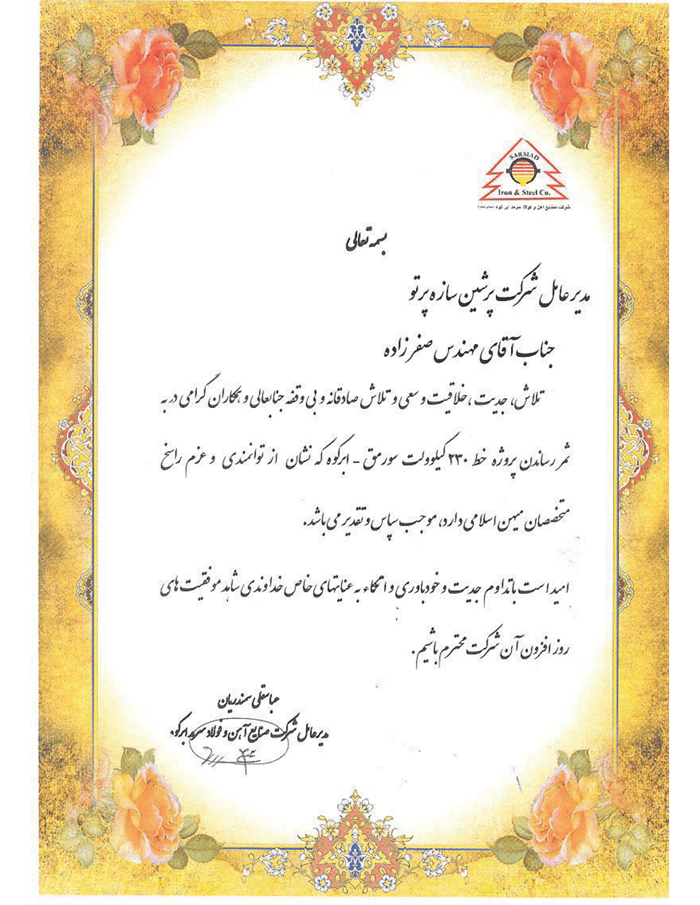 SARMAD
Iron & Steel Co.
شرکت صنایع آهن و فولاد سرمد ابرکوه
بسمه تعالی
مدیر عامل شرکت پرشین سازه پرتو
جناب آقای مهندس صفرزاده
تلاش، جدیت، خلاقیت و سعی و تلاش صادقانه و بی وقفه جنابعالی و همکاران گرامی در به
ثمر رساندن پروژه خط ۲۳۰ کیلوولت سورمق - ابرکوه که نشان از توانمندی و عزم راسخ
متخصصان میهن اسلامی دارد، موجب سپاس و تقدیر می باشد.
امید است با تداوم جدیت و خودباوری و اتکاء به عنایتهای خاص خداوندی شاهد موفقیت های
روز افزون آن شرکت محترم باشیم.
عباسقلی سمندریان
مدیرعامل شرکت صنایع آهن و فولاد سرمد ابرکوه